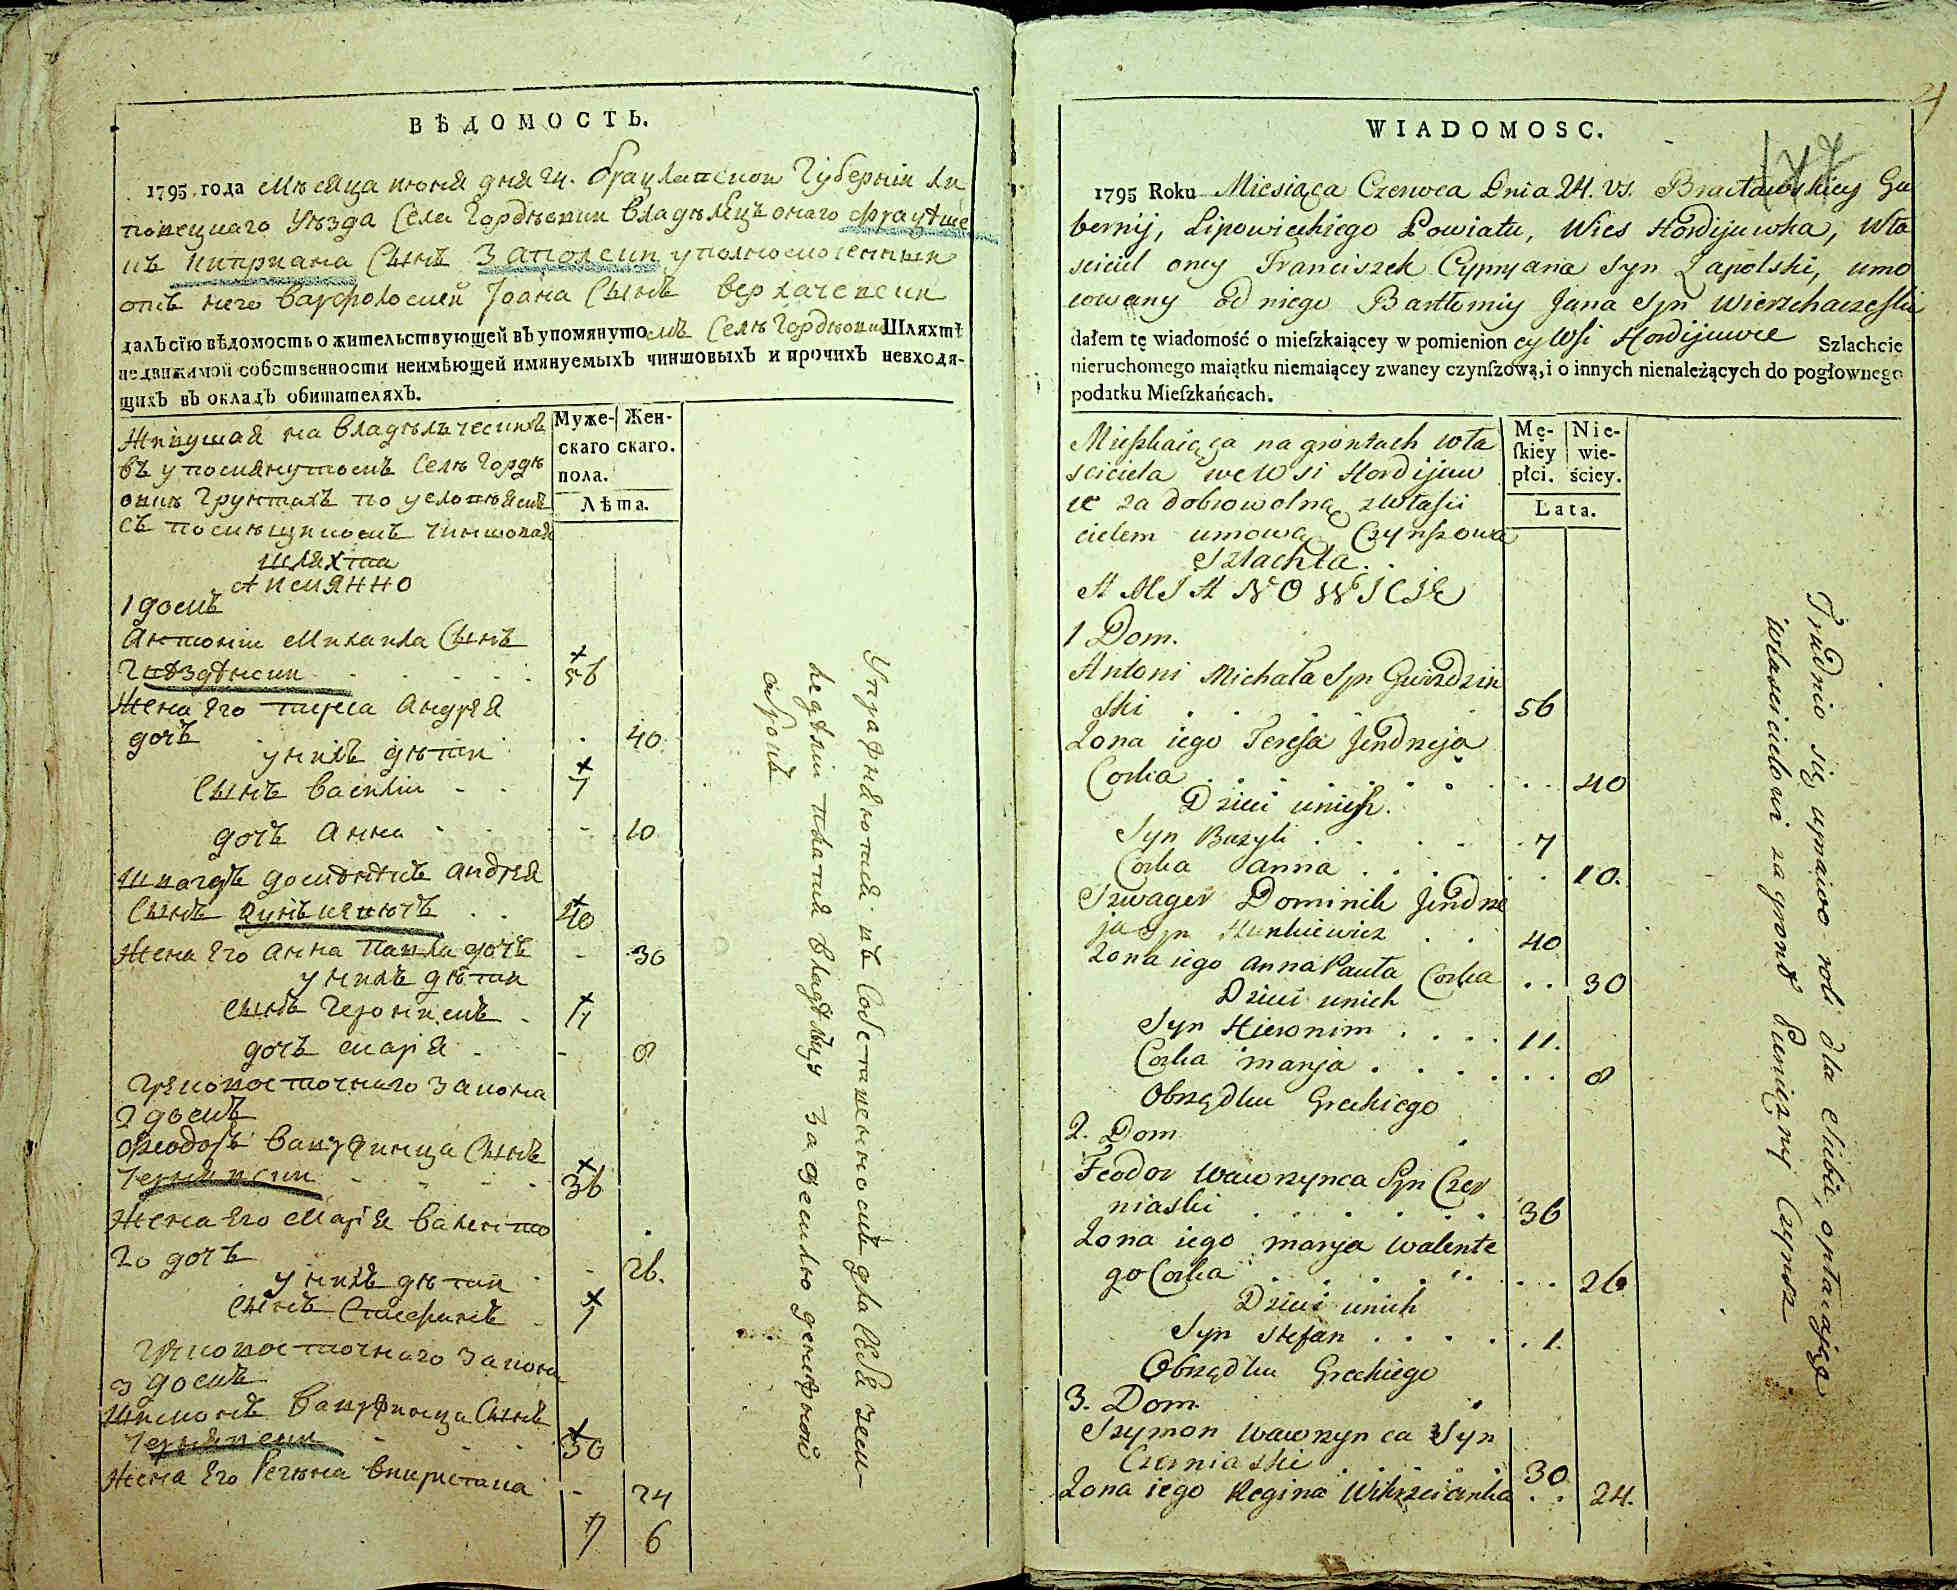 ВѢДОМОСТЬ.
1795 года Мѣсяца июня дня 24. Брацлавской Губернїи Ли
повецкаго Уѣзда Села Гордѣовки владѣлецъ онаго Францѣше
къ Киприана Сынъ Запольски уполномоченный
отъ него Варфоломей Іоана Сынъ Верхачевски
далъ сїю вѣдомость о жительствующей въ упомянутомъ Селѣ Гордѣовки Шляхтѣ
недвижимой собственности неимѣющей имянуемыхъ чиншовыхъ и прочихъ невходя-
щихъ въ окладъ обитателяхъ.
Муже-скаго Жен-скаго.
пола.
Лѣта.
Живущая на владѣльческихъ
въ упомянутомъ Селѣ Гордѣ
овки Грунтахъ по условїямъ
съ помѣщикомъ чиншовая
шляхта
А имянно
1 домъ
Антонїи Михаила Сынъ
Гвѣздѣнски 56
Жена Его Тереса Андрея
дочъ 40
у нихъ дѣти
Сынъ Василїи 7
дочъ Анна 10
Швагеръ Доминикъ Андрея
Сынъ 40
Жена Его Анна Павла дочъ 30
у нихъ дѣти
Сынъ Геронимъ 11
дочъ Марїя 8
Грековосточнаго Закона
2 домъ
Ѳеодоръ Вавржинца Сынъ
Чернявски 36
Жена Его Марїя Валенто
го дочъ 26.
у нихъ дѣти
Сынъ Стефанъ 1
Грековосточнаго Закона
3 домъ
Шимонъ Вавржинца Сынъ
Чернявски 30
Жена Его Регина Викристава 24
7 6
Упражняются въ Собственномъ для себя земле-
дѣлїи платя владѣльцу за землю денежной
оброкъ
WIADOMOSC.
1795 Roku Miesiąca Czerwca Dnia 24. VS. Bracławskiey Gu
bernij, Lipowieckiego Powiatu, Wies Hordijuwka, wła
sciciel oney Franciszek Cypryana Syn Zapolski, umo
cowany od niego Bartłomiy Jana Syn Wierzchaczeski
dałem tę wiadomość o mieſzkaiącey w pomienioney Wsi Hordijuwce Szlachcie
nieruchomego maiątku niemaiącey zwaney czynſzową, i o innych nienależących do pogłownego
podatku Mieſzkańcach.
Mę-ſkiey płci. Nie-wie-ściey.
Lata.
Mieszkaiąca na grontach wła
sciciela we Wsi Hordijuw
ce za dobrowolną z własci
cielem umową Czynszowa
Szlachta.
A MIANOWICIE
1 Dom.
Antoni Michała Syn Gwizdzin
ski 56
Zona iego Teresa Jendrzeja
Corka 40
Dzieci unich.
Syn Bazyli 7
Corka Anna 10.
Szwager Dominik Jendrze
ja Syn Kunkiewicz 40
Zona iego Anna Pauła Corka 30
Dzieci unich
Syn Hieronim 11.
Corka Marya 8
Obrządku Greckiego
2. Dom
Feodor Wawrzynca Syn Czer
niaski 36
Zona iego Marya Walente
go Corka 26
Dzieci unich
Syn Stefan 1.
Obrządku Greckiego
3. Dom.
Szymon Wawrzynca Syn
Czerniaski 30
Zona iego Regina 24.
Trudnio się uprawo roli dla siebie, opłacając
właścicielowi za gront Pieniężny Czynsz